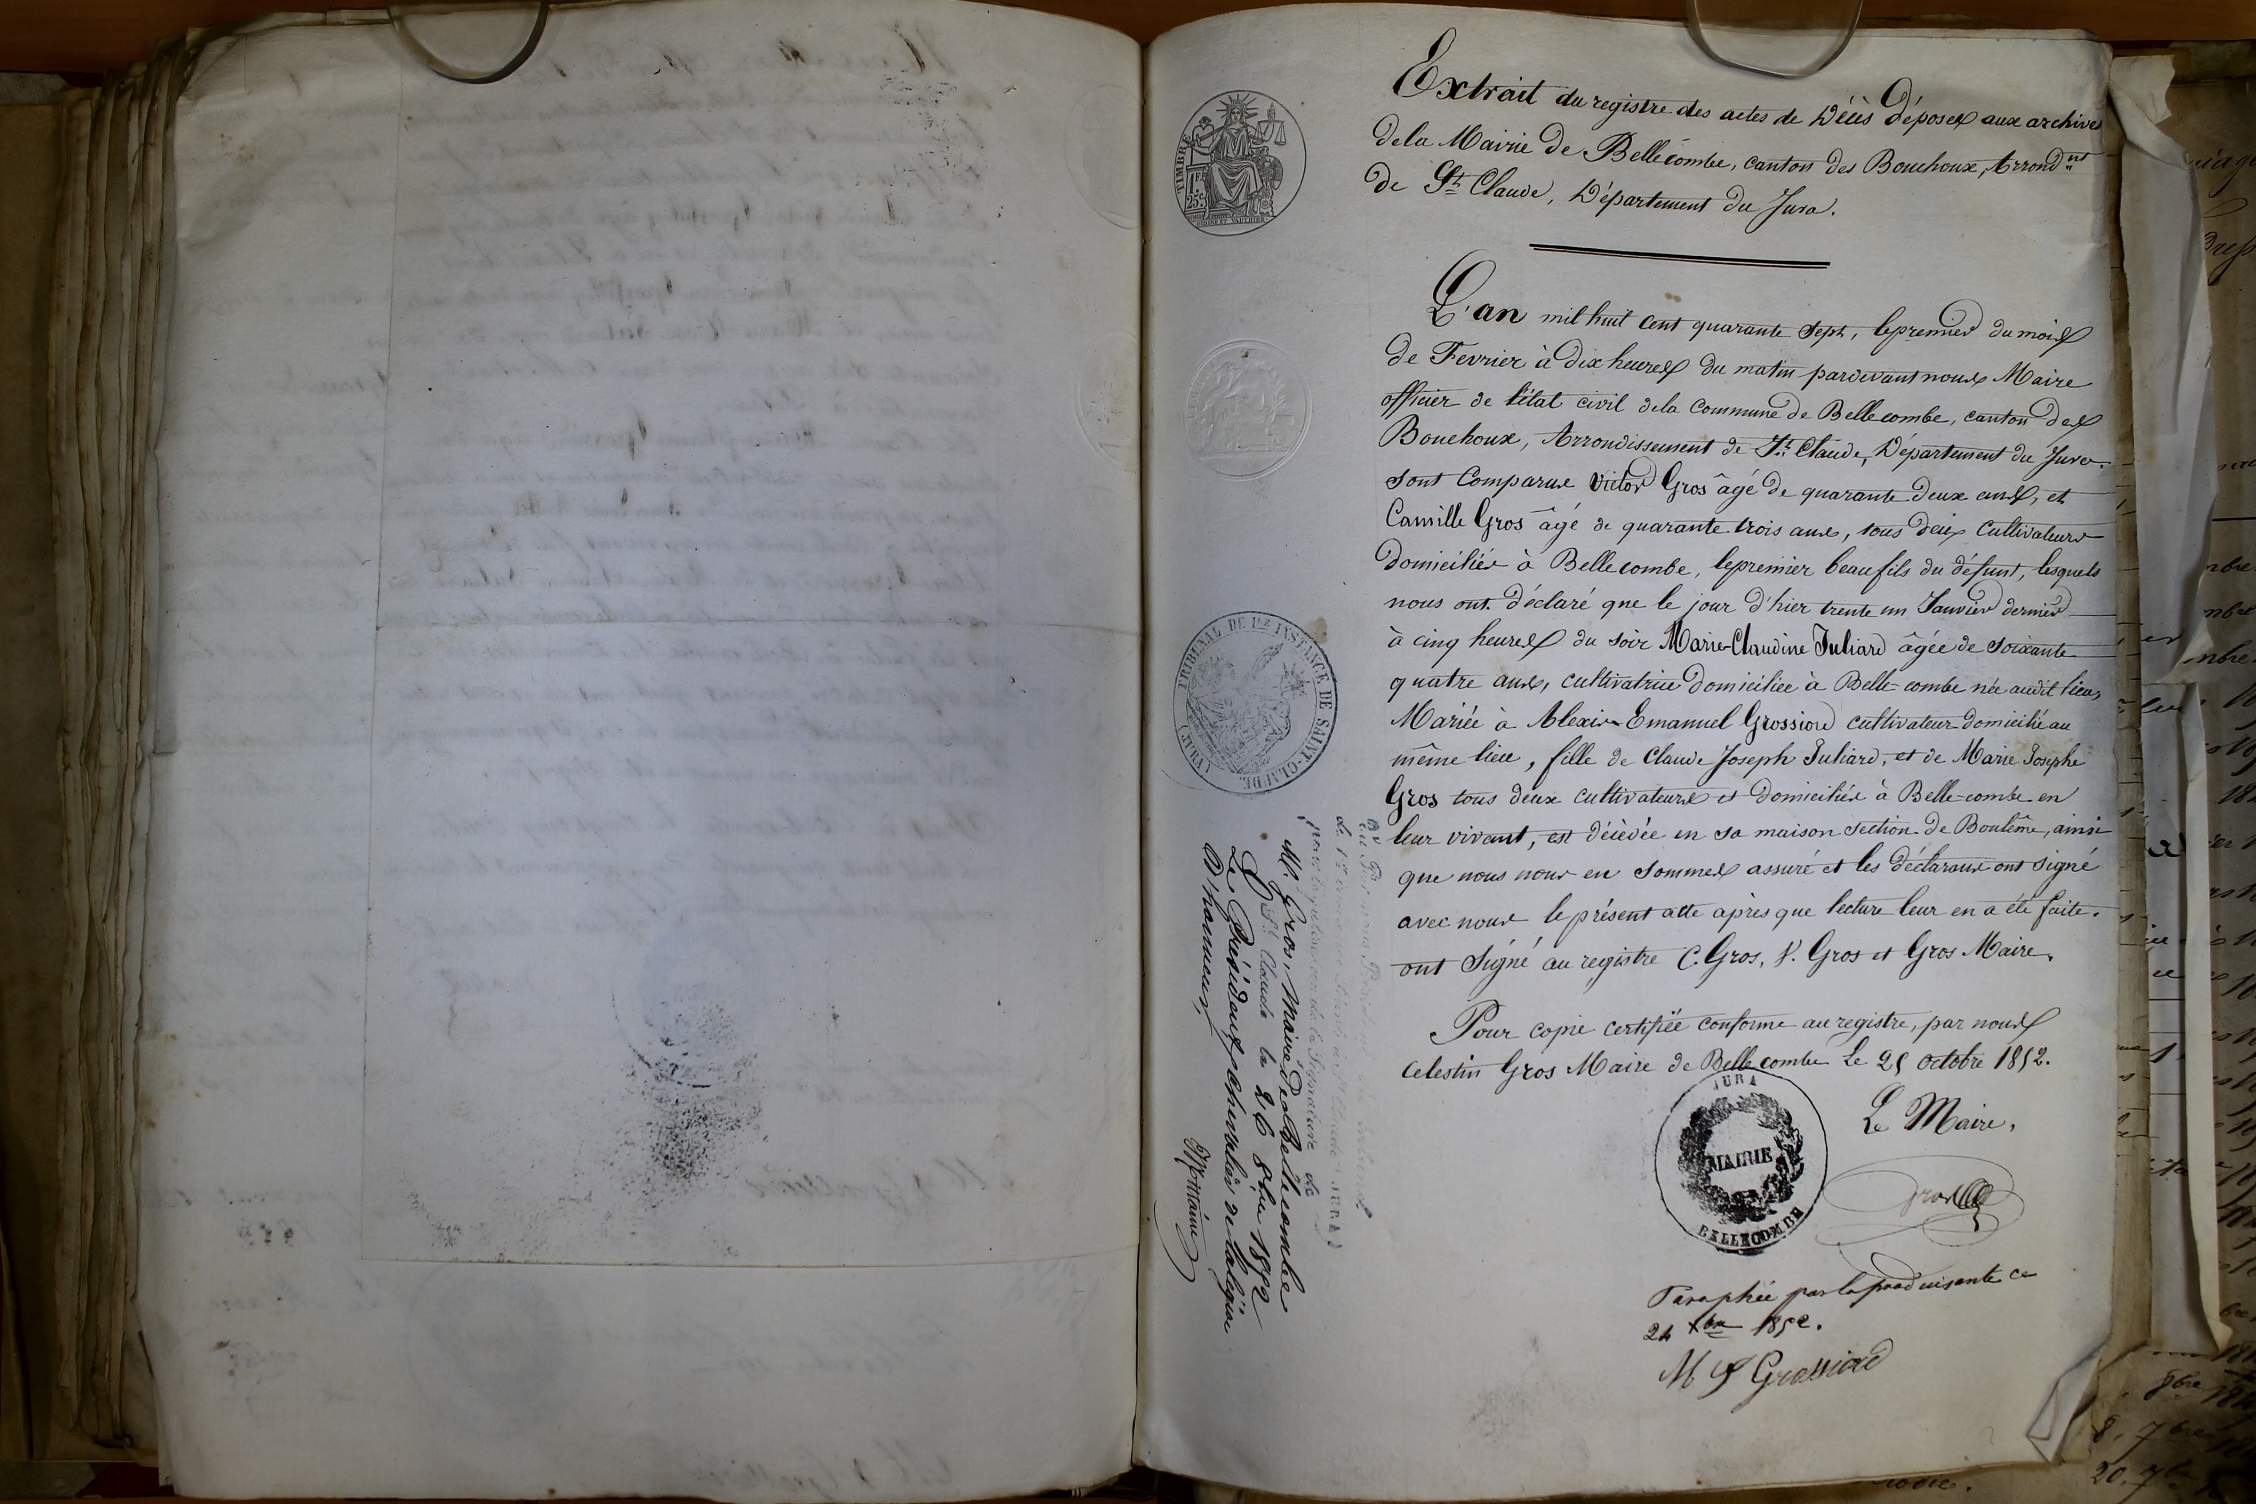 Extrait du registre des actes de Décès Déposés aux archives
de la Mairie de Bellecombe, canton des Bouchoux, Arrond.nt
de St. Claude, Département du Jura.
L'an mil huit cent quarante sept, le premier du mois
de Fevrier à dix heures du matin pardevant nous Maire
officier de l'état civil de la Commune de Belle combe, canton des
Bouchoux, Arrondissement de St. Claude, Département du Jura.
sont Comparus Victor Gros âgé de quarante deux ans, et
Camille Gros âgé de quarante trois ans, tous deux Cultivateurs
domiciliés à Belle combe, le premier beau fils du défunt, lesquels
nous ont déclaré que le jour d'hier trente un Janvier dernier
à cinq heures du soir Marie-Claudine Juliard âgée de soixante
quatre ans, cultivatrice domiciliée à Belle-combe née audit lieu,
Mariée à Alexis Emanuel Grossiord cultivateur domicilié au
même lieu, fille de Claude Joseph Juliard, et de Marie Josephe
Gros tous deux cultivateurs et domiciliés à Belle-combe en
leur vivant, est décèdée en sa maison section de Boulême, ainsi
que nous nous en sommes assuré et les déclarans ont signé
avec nous le présent acte après que lecture leur en a été faite.
ont signé au registre C. Gros, V. Gros et Gros Maire.
Pour copie certifiée conforme au registre, par nous
Celestin Gros Maire de Belle combe Le 25 octobre 1852.
Le Maire,
Gros
JURA
MAIRIE
BELLECOMBE
Paraphée par la produisante ce
24 Xbre 1852.
M J Grossiord
TIMBRE
1 FR
25 C.
TRIBUNAL DE 1RE INSTANCE DE SAINT-CLAUDE
(JURA)
de la Signature de
M. Gros, Maire de Bellecombe
St. Claude le 26 8bre 1852
Le Président, chevalier de la légion
d'honneur,